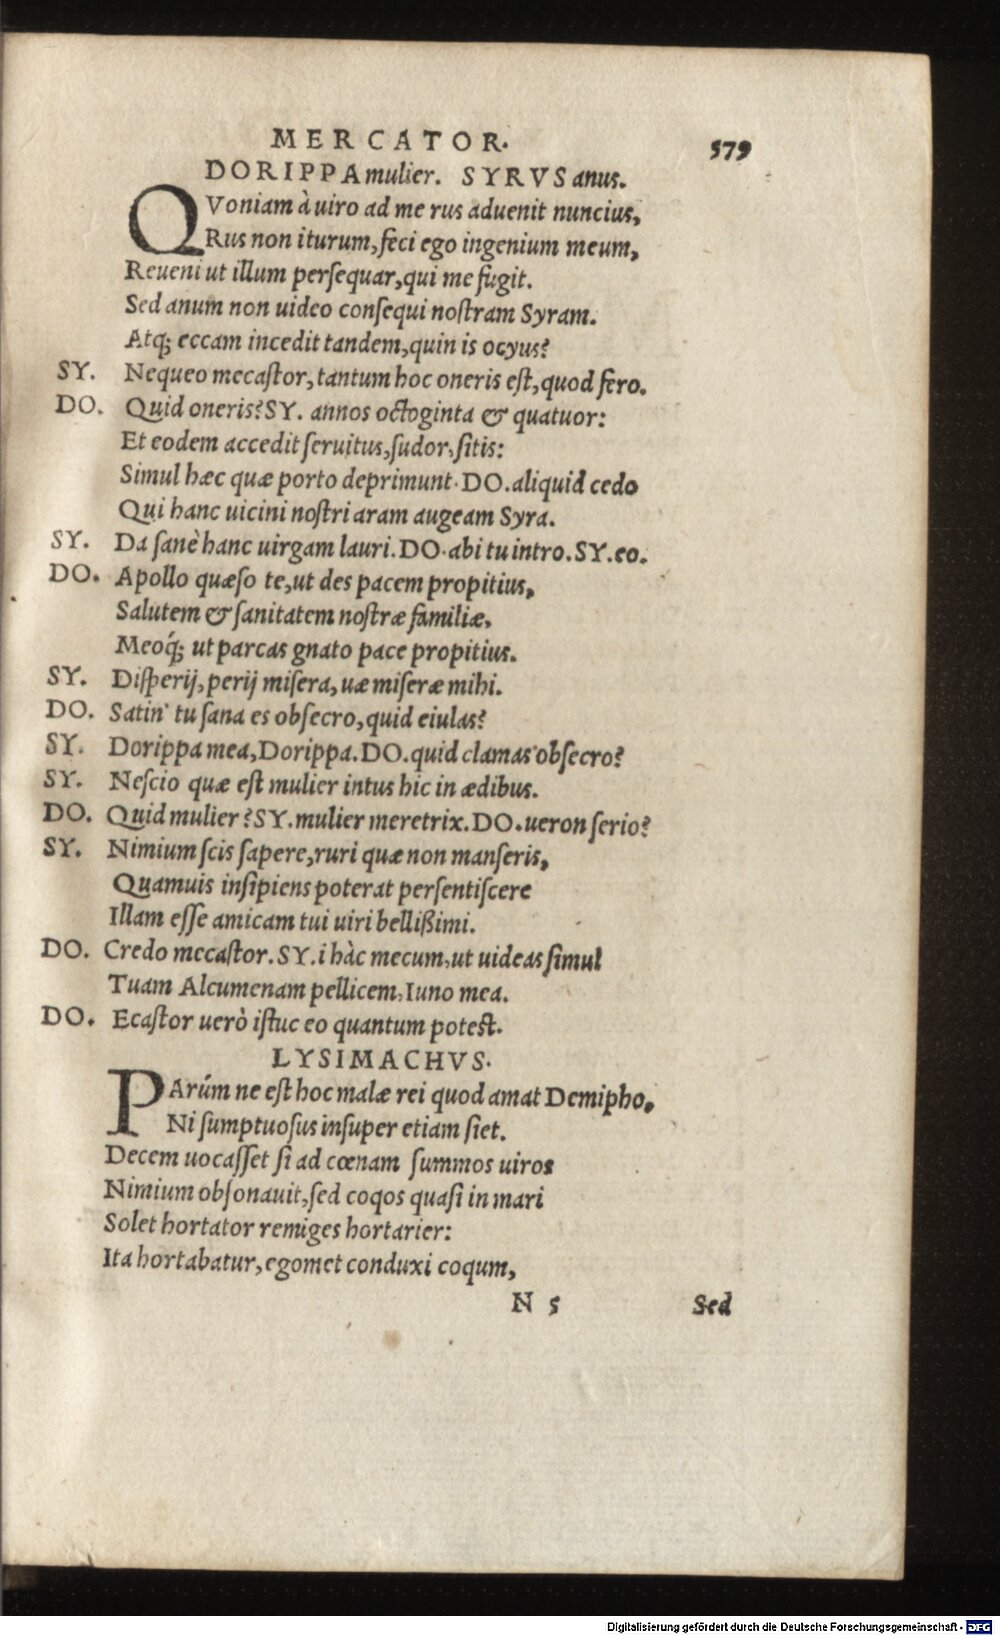 MERCATOR. 579
DORIPPA mulier. SYRVS anus.
QVoniam à uiro ad me rus aduenit nuncius,
Rus non iturum, feci ego ingenium meum,
Reueni ut illum perſequar, qui me fugit.
Sed anum non uideo conſequi noſtram Syram.
Atq; eccam incedit tandem, quin is ocyus?
SY. Nequeo mecaſtor, tantum hoc oneris eſt, quod fero.
DO. Quid oneris? SY. annos octoginta & quatuor:
Et eodem accedit ſeruitus, ſudor, ſitis:
Simul hæc quæ porto deprimunt. DO. aliquid cedo
Qui hanc uicini noſtri aram augeam Syra.
SY. Da ſanè hanc uirgam lauri. DO. abi tu intro. SY. eo.
DO. Apollo quæſo te, ut des pacem propitius,
Salutem & ſanitatem noſtræ familiæ,
Meoq́; ut parcas gnato pace propitius.
SY. Diſperij, perij miſera, uæ miſeræ mihi.
DO. Satin' tu ſana es obſecro, quid eiulas?
SY. Dorippa mea, Dorippa. DO. quid clamas obſecro?
SY. Neſcio quæ eſt mulier intus hic in ædibus.
DO. Quid mulier? SY. mulier meretrix. DO. ueron ſerio?
SY. Nimium ſcis ſapere, ruri quæ non manſeris,
Quamuis inſipiens poterat perſentiſcere
Illam eſſe amicam tui uiri belliſſimi.
DO. Credo mecaſtor. SY. i hàc mecum, ut uideas ſimul
Tuam Alcumenam pellicem, Iuno mea.
DO. Ecaſtor uerò iſtuc eo quantum poteſt.
LYSIMACHVS.
PArúm ne eſt hoc malæ rei quod amat Demipho,
Ni ſumptuoſus inſuper etiam ſiet.
Decem uocaſſet ſi ad cœnam ſummos uiros
Nimium obſonauit, ſed coqos quaſi in mari
Solet hortator remiges hortarier:
Ita hortabatur, egomet conduxi coqum,
N 5 Sed
Digitalisierung gefördert durch die Deutsche Forschungsgemeinschaft - DFG